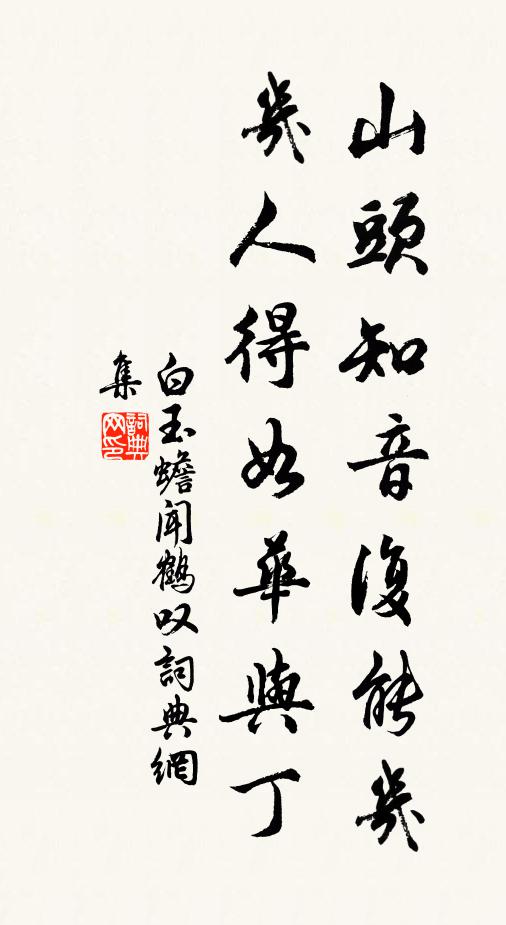 山頭知音復能幾
幾人得如華與丁
白玉蟾聞鶴叹詞典網
集
詞典网印